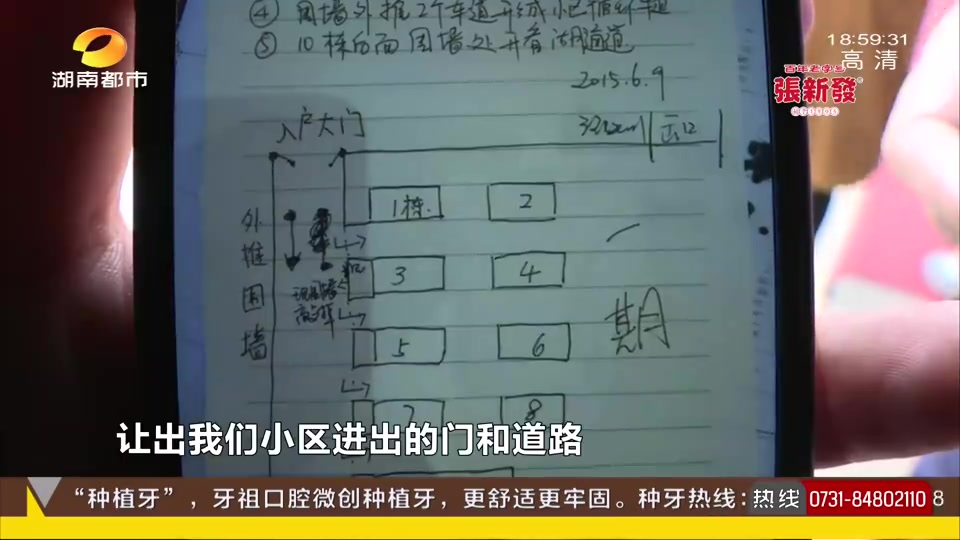 ④ 围墙外推2个车道 形成小区循环車道
⑤ 10栋后面围墙处开着消防通道
2015.6.9
湖南都市
18:59:31
高清
百年老字号
張新發
入户大门
1栋
2
3
4
5
6
7
8
外推围墙
一期
让出我们小区进出的门和道路
“种植牙”，牙祖口腔微创种植牙，更舒适更牢固。种牙热线:
热线
0731-84802110
8